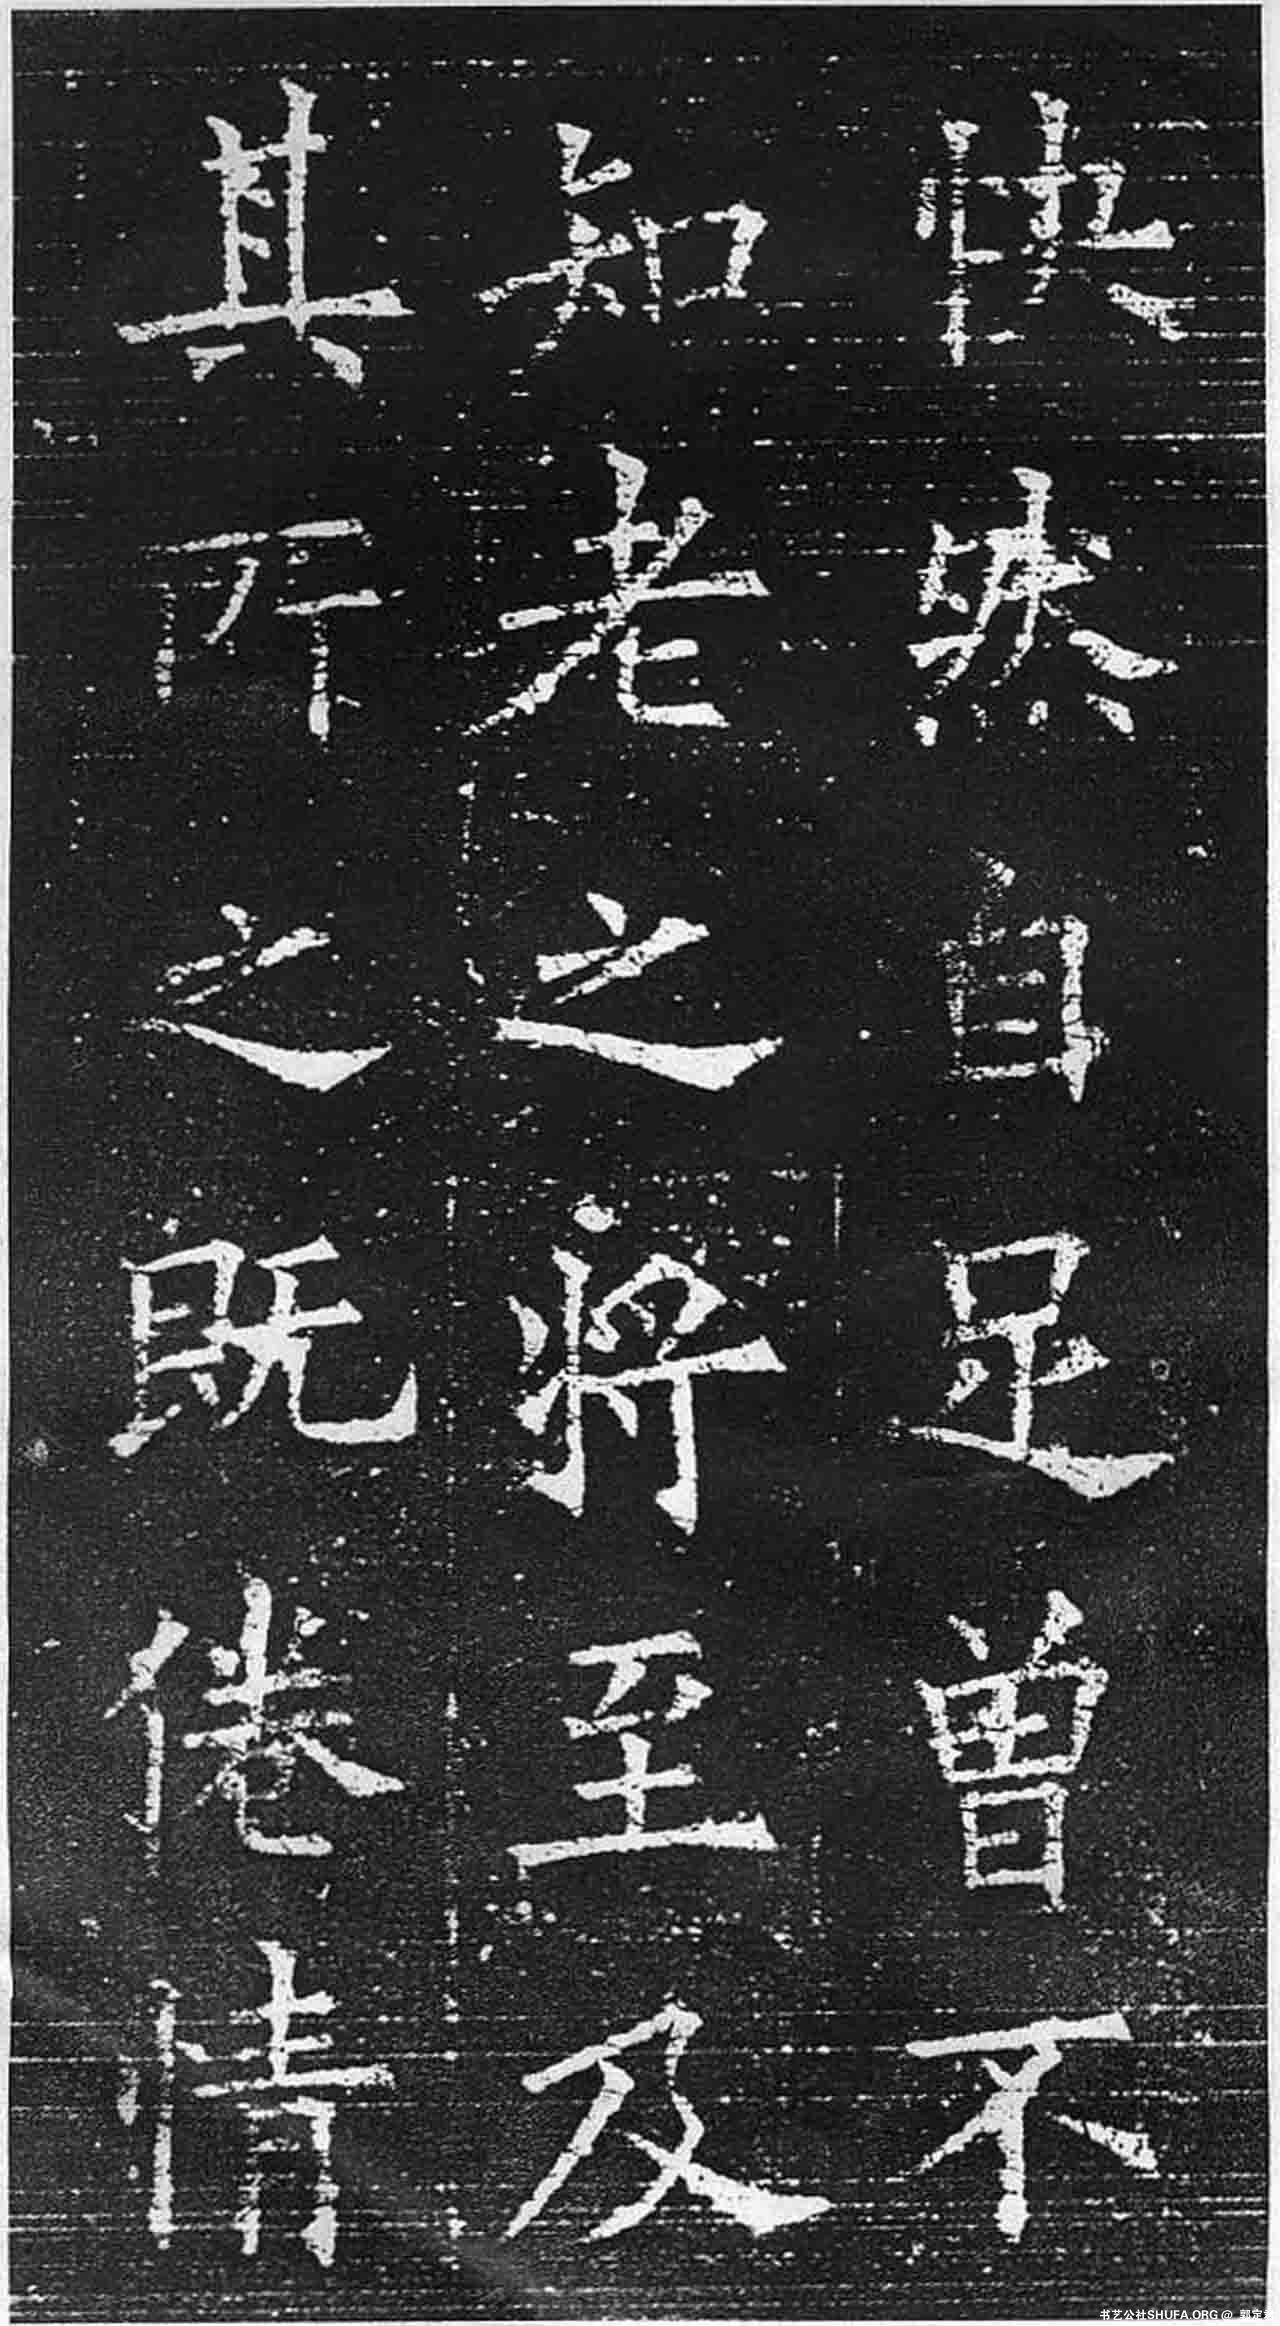 快然自足曽不
知老之將至及
其所之既倦情
书艺公社SHUFA.ORG @ 郭定